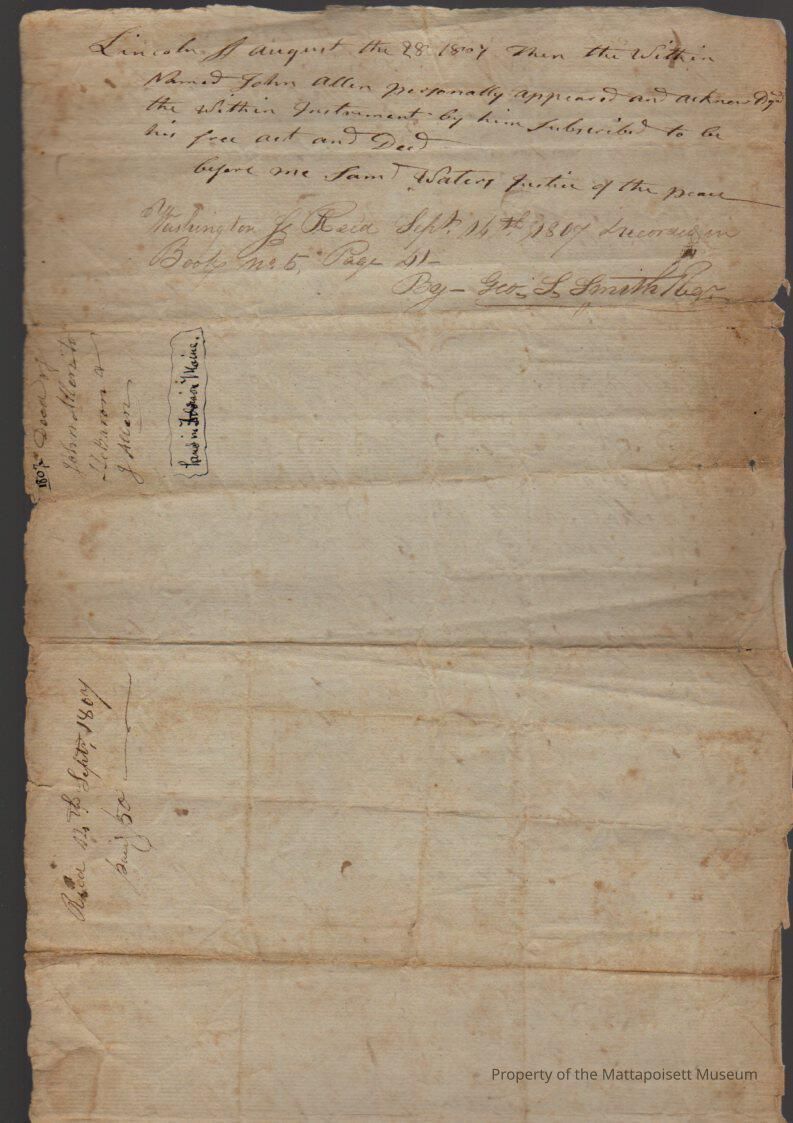 Lincoln ss august the 28 1807 Then the Within
Named John Allen personally appeared and acknowldgd
the Within Instrument by him subscribed to be
his free act and Deed
before me Saml Waters Justice of the peace
Washington ss Recd Sept. 14th 1807 & recorded in
Book no 5, Page 41
By Geo. S. Smith Regr
1807 Deed of
John Allen to
Lebaron &
J Allen
Land in Maine.
Recd 14th Sept. 1807
paid 50
Property of the Mattapoisett Museum